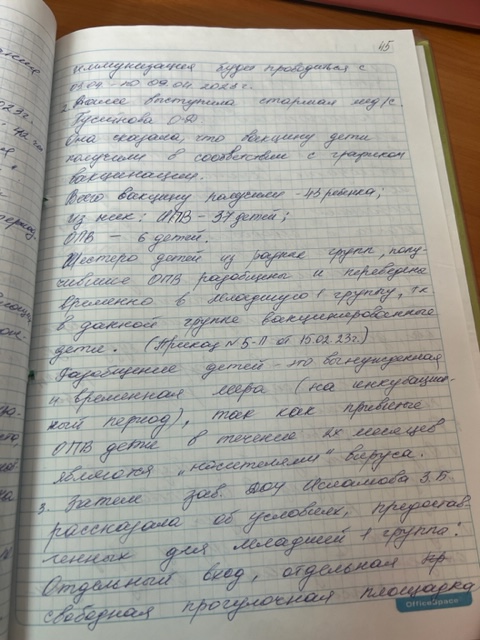 45
иммунизация будет проводиться с
03.04. по 09.04.2023г.
2. Далее выступила старшая мед/с
Она сказала, что вакцину дети
получили в соответствии с графиком
вакцинации.
Всего вакцину получили - 43 ребёнка;
из них: ИПВ - 37 детей;
ОПВ - 6 детей.
Шестеро детей из разных групп, полу-
чившие ОПВ разобщены и переведены
временно в младшую 1 группу, т.к
в данной группе вакцинированные
дети. (Приказ №5-П от 15.02.23г.)
Разобщение детей - это вынужденная
и временная мера (на инкубацион-
ный период), так как привитые
ОПВ дети в течение 2х месяцев
являются "носителями" вируса.
3. Затем зав. ДОУ Исламова З.Б
рассказала об условиях, предостав-
ленных для младшей 1 группы:
Отдельный вход, отдельная пр
свободная прогулочная площадка
OfficeSpace